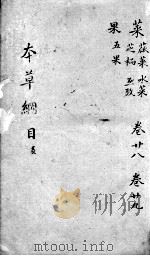 菜 蓏菜 水菜
芝栭 五
果 五果
卷廿八 卷廿九
本草綱目
www.duxiu.com